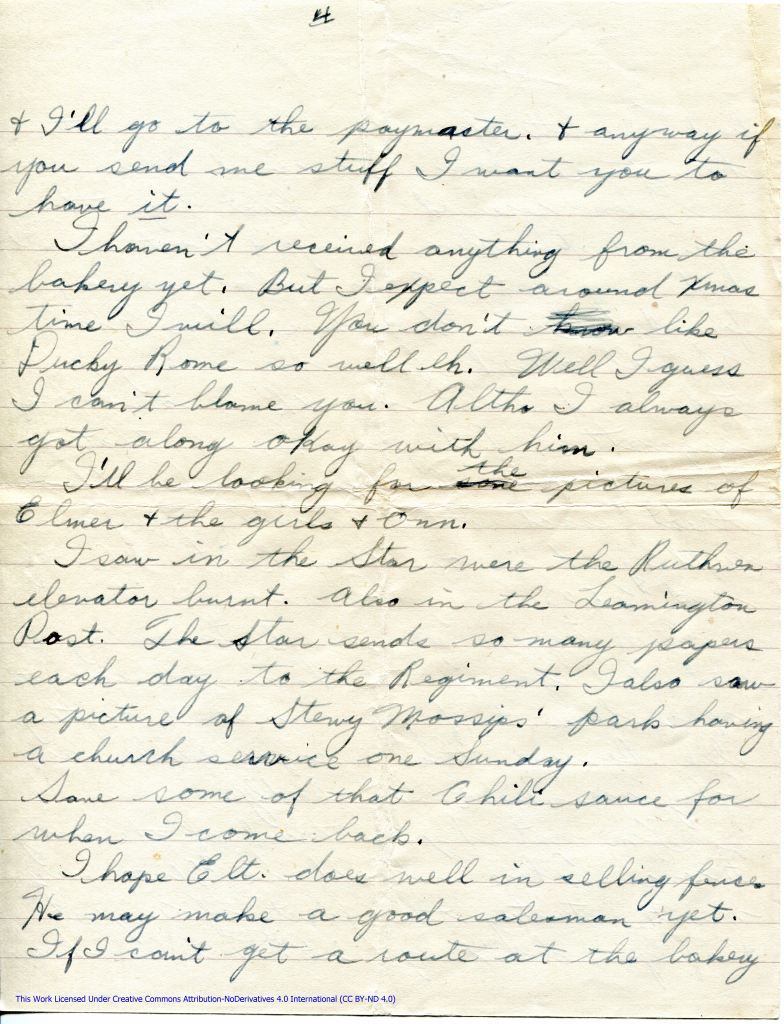 4
& I'll go to the paymaster. & anyway if
you send me stuff I want you to
have it.
I haven't received anything from the
bakery yet. But I expect around Xmas
time I will. You don't know like
Ducky Rome so well eh. Well I guess
I can't blame you. Altho I always
got along okay with him.
I'll be looking for some the pictures of
Elmer & the girls & Onn.
I saw in the Star were the Ruthven
elevator burnt. Also in the Leamington
Post. The Star sends so many papers
each day to the Regiment. I also saw
a picture of Stewy Mossips' park having
a church service one Sunday.
Save some of that Chili sauce for
when I come back.
I hope Elt. does well in selling fence
He may make a good salesman yet.
If I can't get a route at the bakery
This Work Licensed Under Creative Commons Attribution-NoDerivatives 4.0 International (CC BY-ND 4.0)